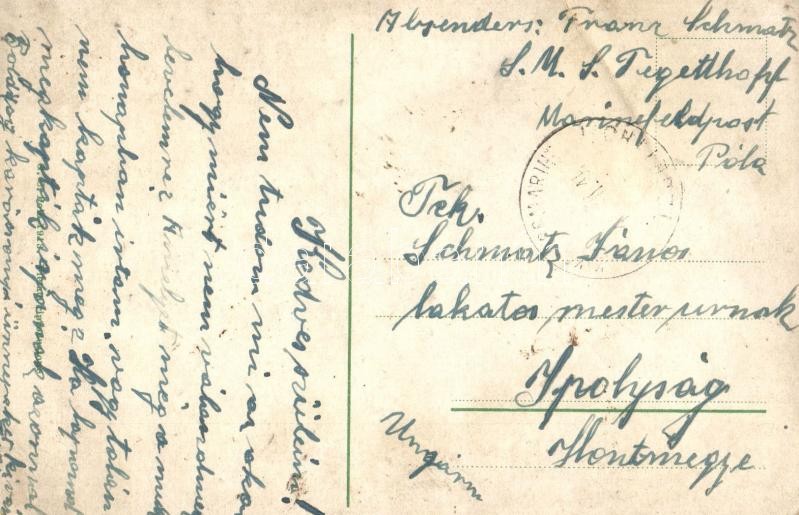 Absenders: Franz Schmatz
S. M. S. Tegetthoff
Marinefeldpost
Póla
Tek.
Schmatz János
lakatos mester urnak
Ipolyság
Hontmegye
Ungarn
Kedves szüleim!
Nem tudom mi az oka
hogy miért nem válaszolnak
levelemre melyet még a mult
honapban irtam, vagy talán
nem kapták meg? Ha lapomat
megkapták azonnal
karácsonyi ünnepeket kiván